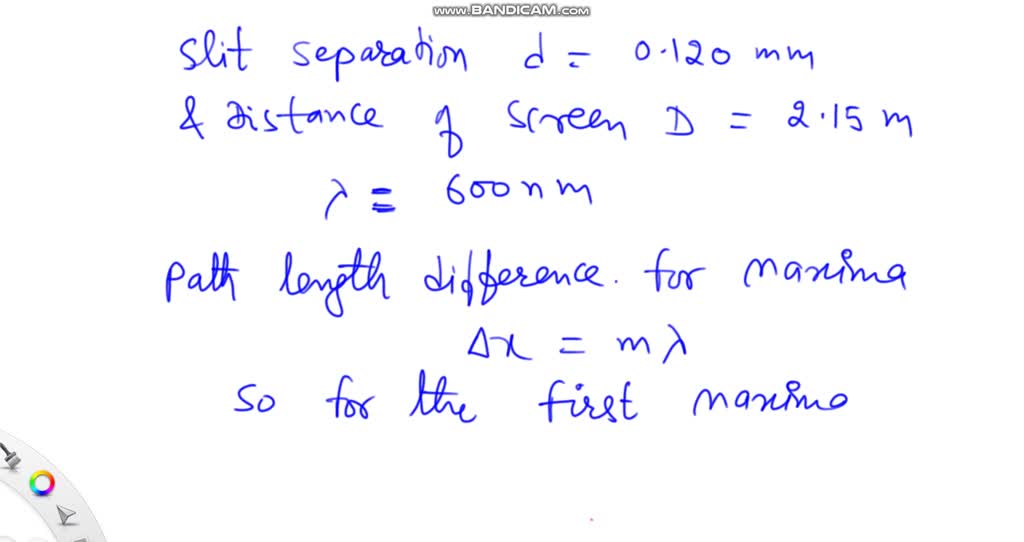 www.BANDICAM.com
Slit separation d = 0.120 mm
& Distance of screen D = 2.15 m
λ = 600 nm
Path length difference. for maxima
Δx = mλ
So for the first maxima